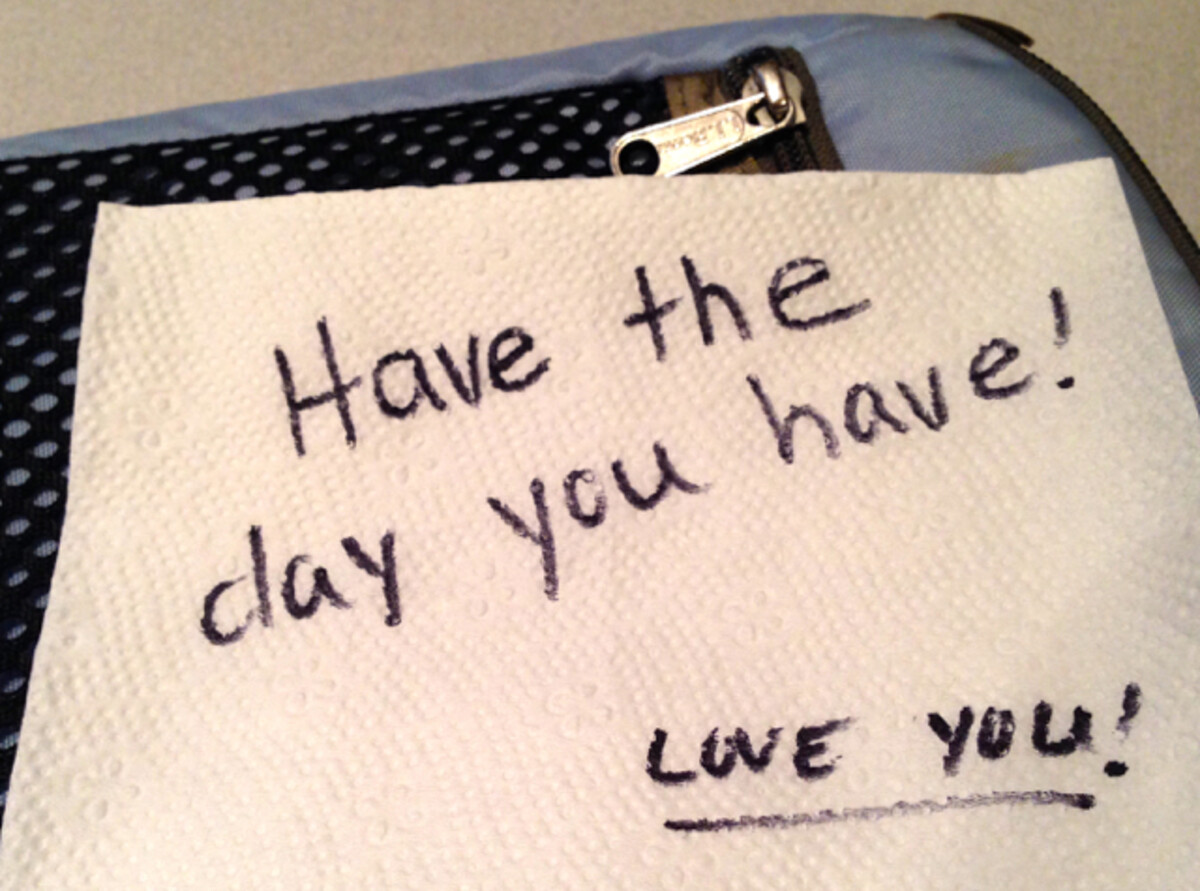 Have the
day you have!
LOVE YOU!